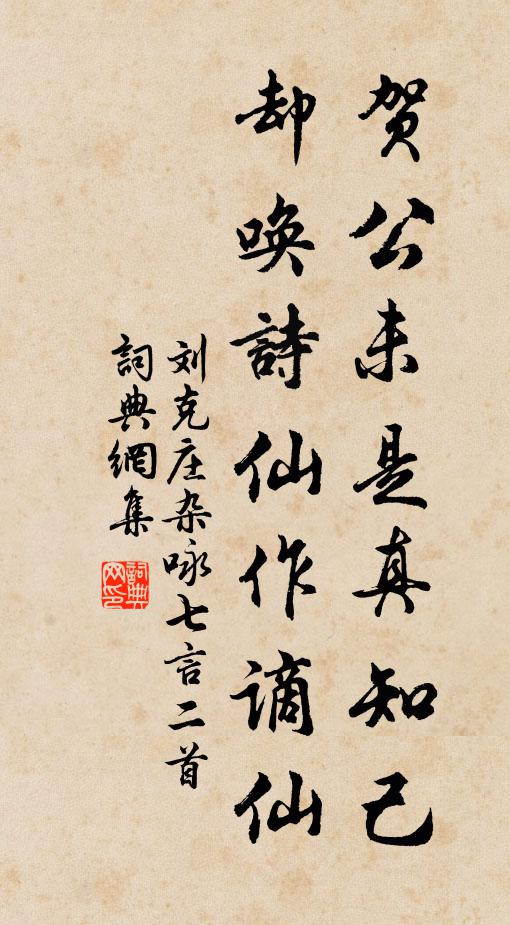 賀公未是真知己
却唤詩仙作謫仙
刘克庄杂咏七言二首
詞典網集
詞典
网印